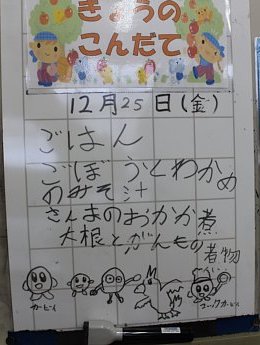 きょうの
こんだて
12月25日(金)
ごはん
ごぼうとわかめ
のみそ汁
さんまのおかか煮
大根とがんもの煮物
カービィ
コックカービィ